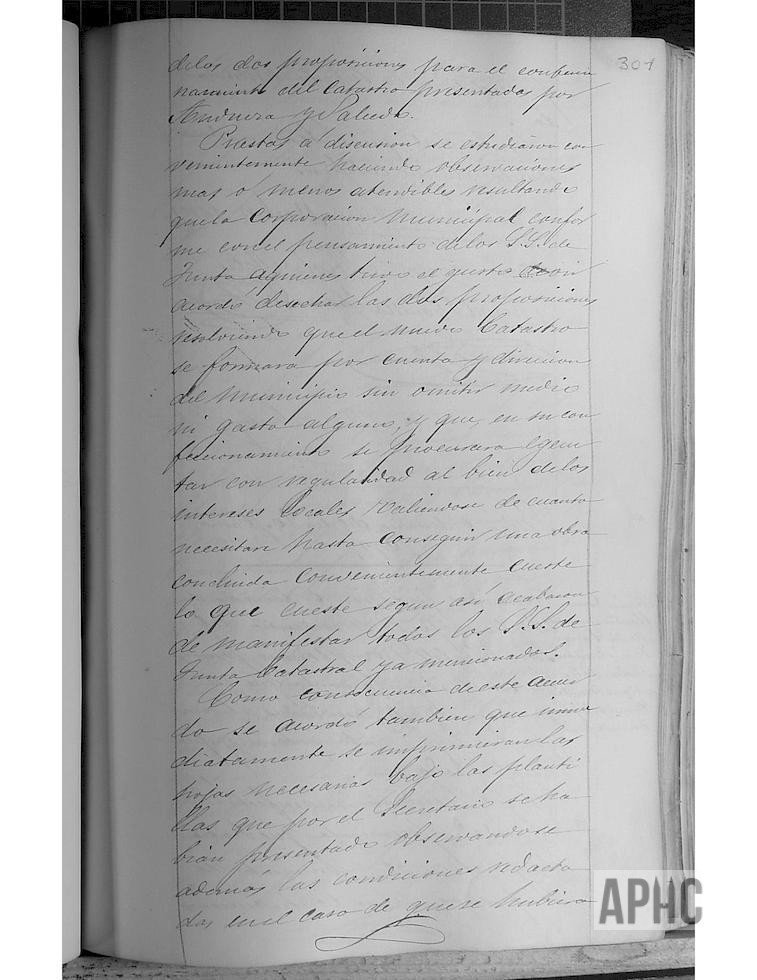 301
delas dos proposiciones para el confeccio
namiento del Catastro presentadas por
Andueza y Salcedo.
Puestas á discusion se estudiaron con
venientemente haciendo observaciones
mas o menos atendibles resultando
que la Corporacion Municipal confor
me con el pensamiento delos S.S. de
Junta aquienes tuvo el gusto de oir
acordó desechar las dos proposiciones
resolviendo que el nuevo Catastro
se formara por cuenta y direccion
del Municipio sin omitir medio
ni gasto alguno; y que, en su con
feccionamiento se procurara egecu
tar con regularidad al bien delos
intereses locales valiendose de cuanto
necesitare hasta conseguir una obra
concluida convenientemente cueste
lo que cueste segun asi acabaron
de manifestar todos los S.S. de
Junta Catastral ya mencionados.
Como consecuencia de este acuer
do se acordó tambien que inme
diatamente se imprimieran las
hojas necesarias bajo las planti
llas que por el Secretario se ha
bian presentado observandose
además las condiciones redacta
das en el caso de que se hubiera
APHC